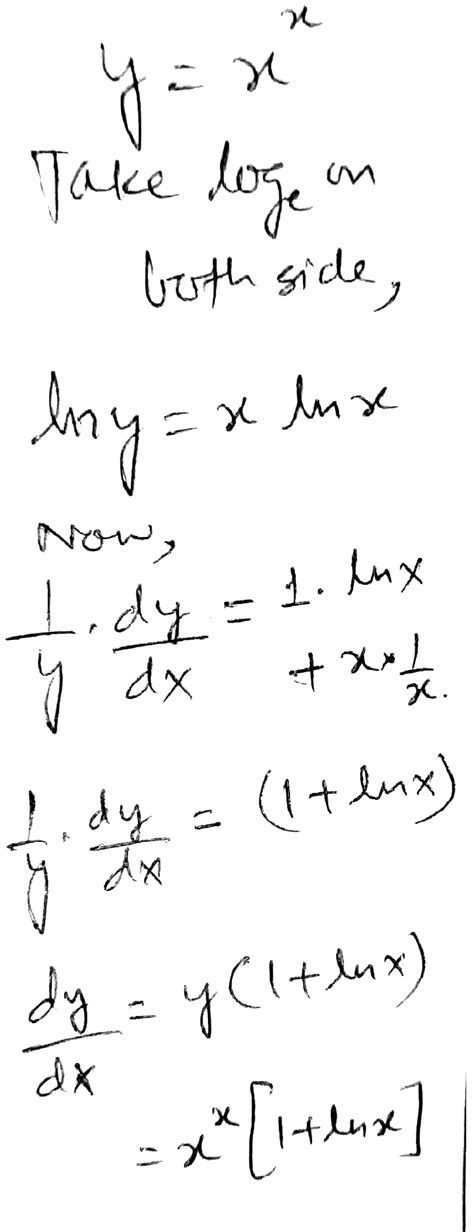 y = x^x
Take log_e on
both side,
ln y = x ln x
Now,
1/y . dy/dx = 1. ln x
+ x × 1/x.
1/y . dy/dx = (1 + ln x)
dy/dx = y (1 + ln x)
= x^x [1 + ln x]